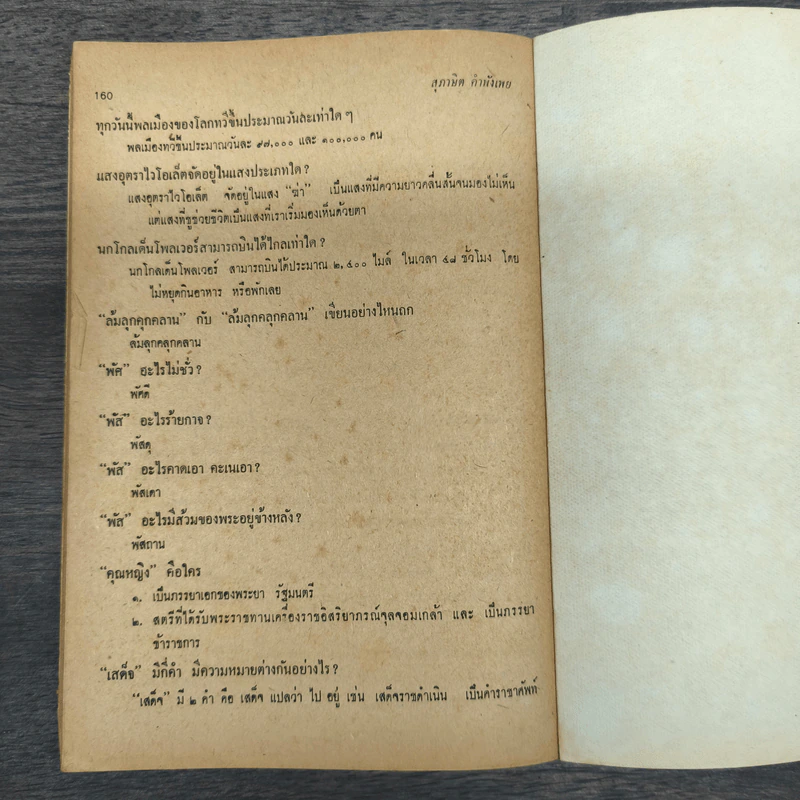 160
สุภาษิต คำพังเพย
ทุกวันนี้พลเมืองของโลกทวีขึ้นประมาณวันละเท่าใด ๆ
พลเมืองทวีขึ้นประมาณวันละ ๙๗,๐๐๐ และ ๑๐๐,๐๐๐ คน
แสงอุตราไวโอเล็ตจัดอยู่ในแสงประเภทใด ?
แสงอุตราไวโอเล็ต จัดอยู่ในแสง “ฆ่า” เป็นแสงที่มีความยาวคลื่นสั้นจนมองไม่เห็น
แต่แสงที่ชูช่วยชีวิตเป็นแสงที่เราเริ่มมองเห็นด้วยตา
นกโกลเด็นโพลเวอร์สามารถบินได้ไกลเท่าใด ?
นกโกลเด็นโพลเวอร์ สามารถบินได้ประมาณ ๒,๔๐๐ ไมล์ ในเวลา ๔๘ ชั่วโมง โดย
ไม่หยุดกินอาหาร หรือพักเลย
“ล้มลุกคุกคลาน” กับ “ล้มลุกคลุกคลาน” เขียนอย่างไหนถูก
ล้มลุกคลุกคลาน
“พัศ” อะไรไม่ชั่ว ?
พัศดี
“พัส” อะไรร้ายกาจ ?
พัสดุ
“พัส” อะไรคาดเอา คะเนเอา ?
พัสเดา
“พัส” อะไรมีส้วมของพระอยู่ข้างหลัง ?
พัสถาน
“คุณหญิง” คือใคร
๑. เป็นภรรยาเอกของพระยา รัฐมนตรี
๒. สตรีที่ได้รับพระราชทานเครื่องราชอิสริยาภรณ์จุลจอมเกล้า และ เป็นภรรยา
ข้าราชการ
“เสด็จ” มีกี่คำ มีความหมายต่างกันอย่างไร ?
“เสด็จ” มี ๒ คำ คือ เสด็จ แปลว่า ไป อยู่ เช่น เสด็จราชดำเนิน เป็นคำราชาศัพท์